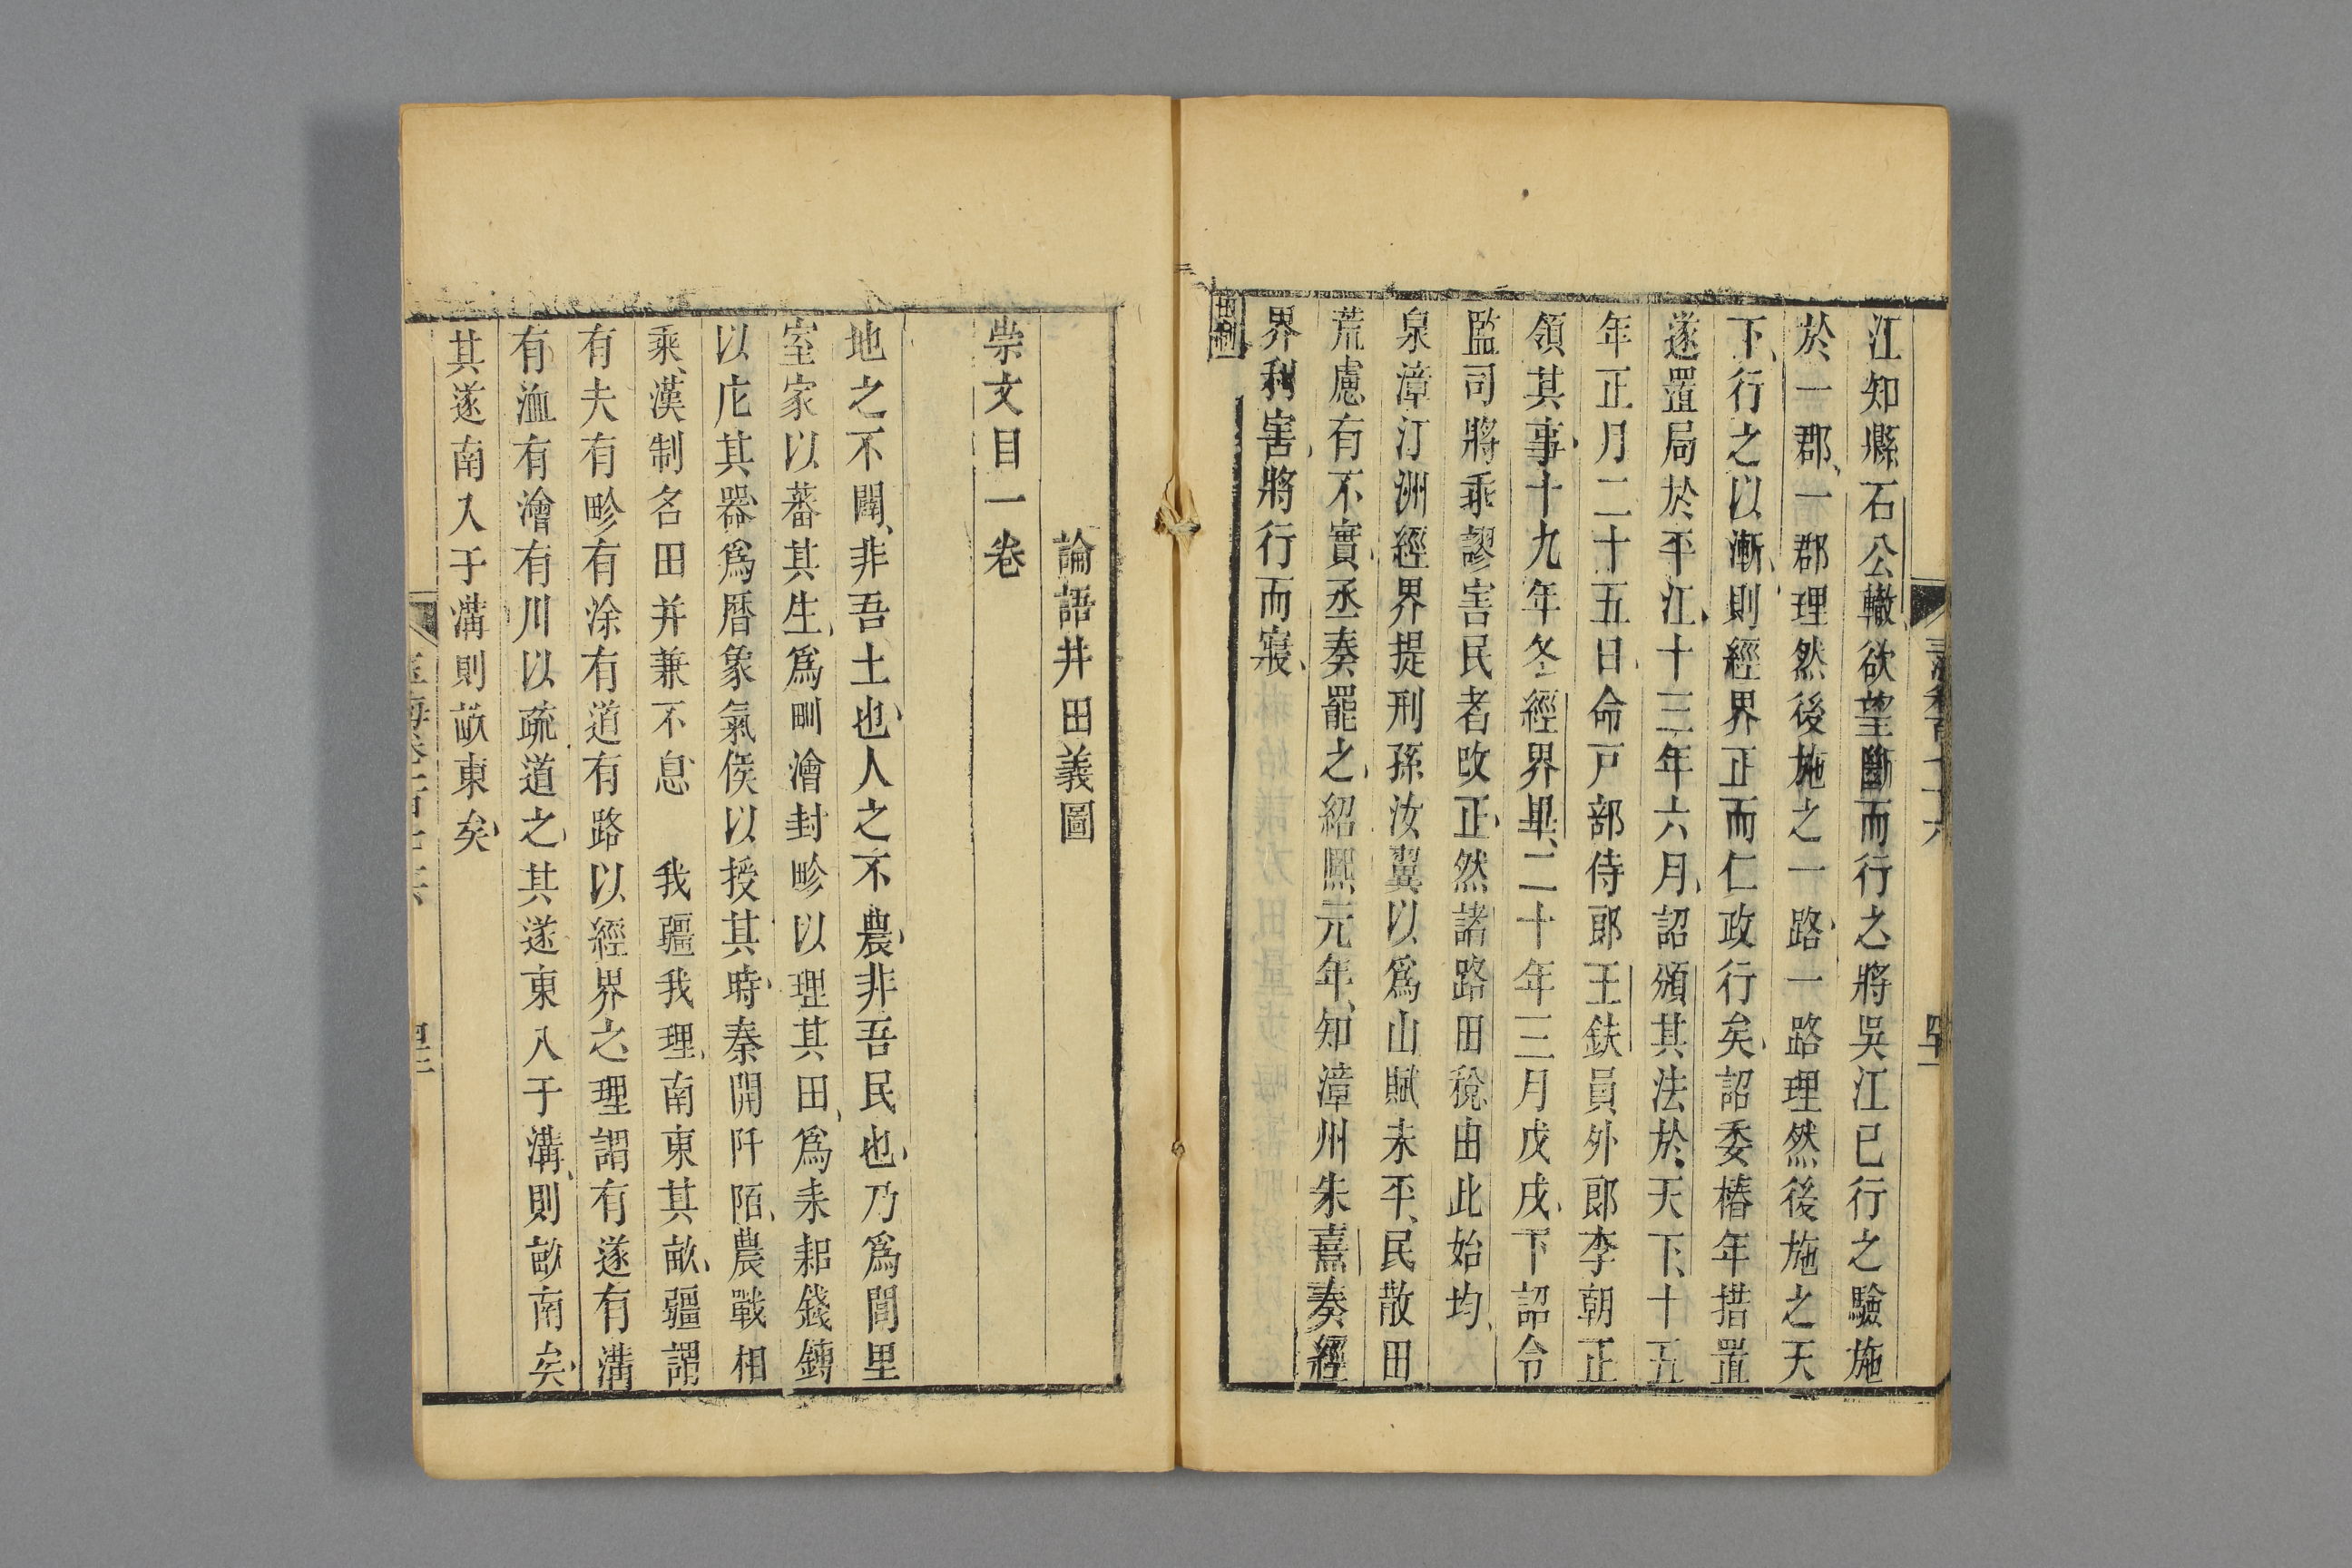 江知縣石公轍欲望斷而行之將吳江已行之驗施
於一郡一郡理然後施之一路一路理然後施之天
下行之以漸則經界正而仁政行矣詔委椿年措置
遂置局於平江十三年六月詔頒其法於天下十五
年正月二十五日命戸部侍郎王鈇員外郎李朝正
領其事十九年冬經界畢二十年三月戊戌下詔令
監司將乖謬害民者改正然諸路田稅由此始均
泉漳汀洲經界提刑孫汝翼以爲山賦未平民散田
荒慮有不實丞奏罷之紹熙元年知漳州朱熹奏經
界利害將行而寢
田制
論語井田義圖
崇文目一卷
地之不闢非吾土也人之不農非吾民也乃爲閭里
室家以蕃其生爲甽澮封畛以理其田爲耒耜錢鎛
以庀其器爲曆象氣侯以授其時秦開阡陌農戰相
乘漢制名田并兼不息　我疆我理南東其畝疆謂
有夫有畛有涂有道有路以經界之理謂有遂有溝
有洫有澮有川以疏道之其遂東入于溝則畝南矣
其遂南入于溝則畝東矣